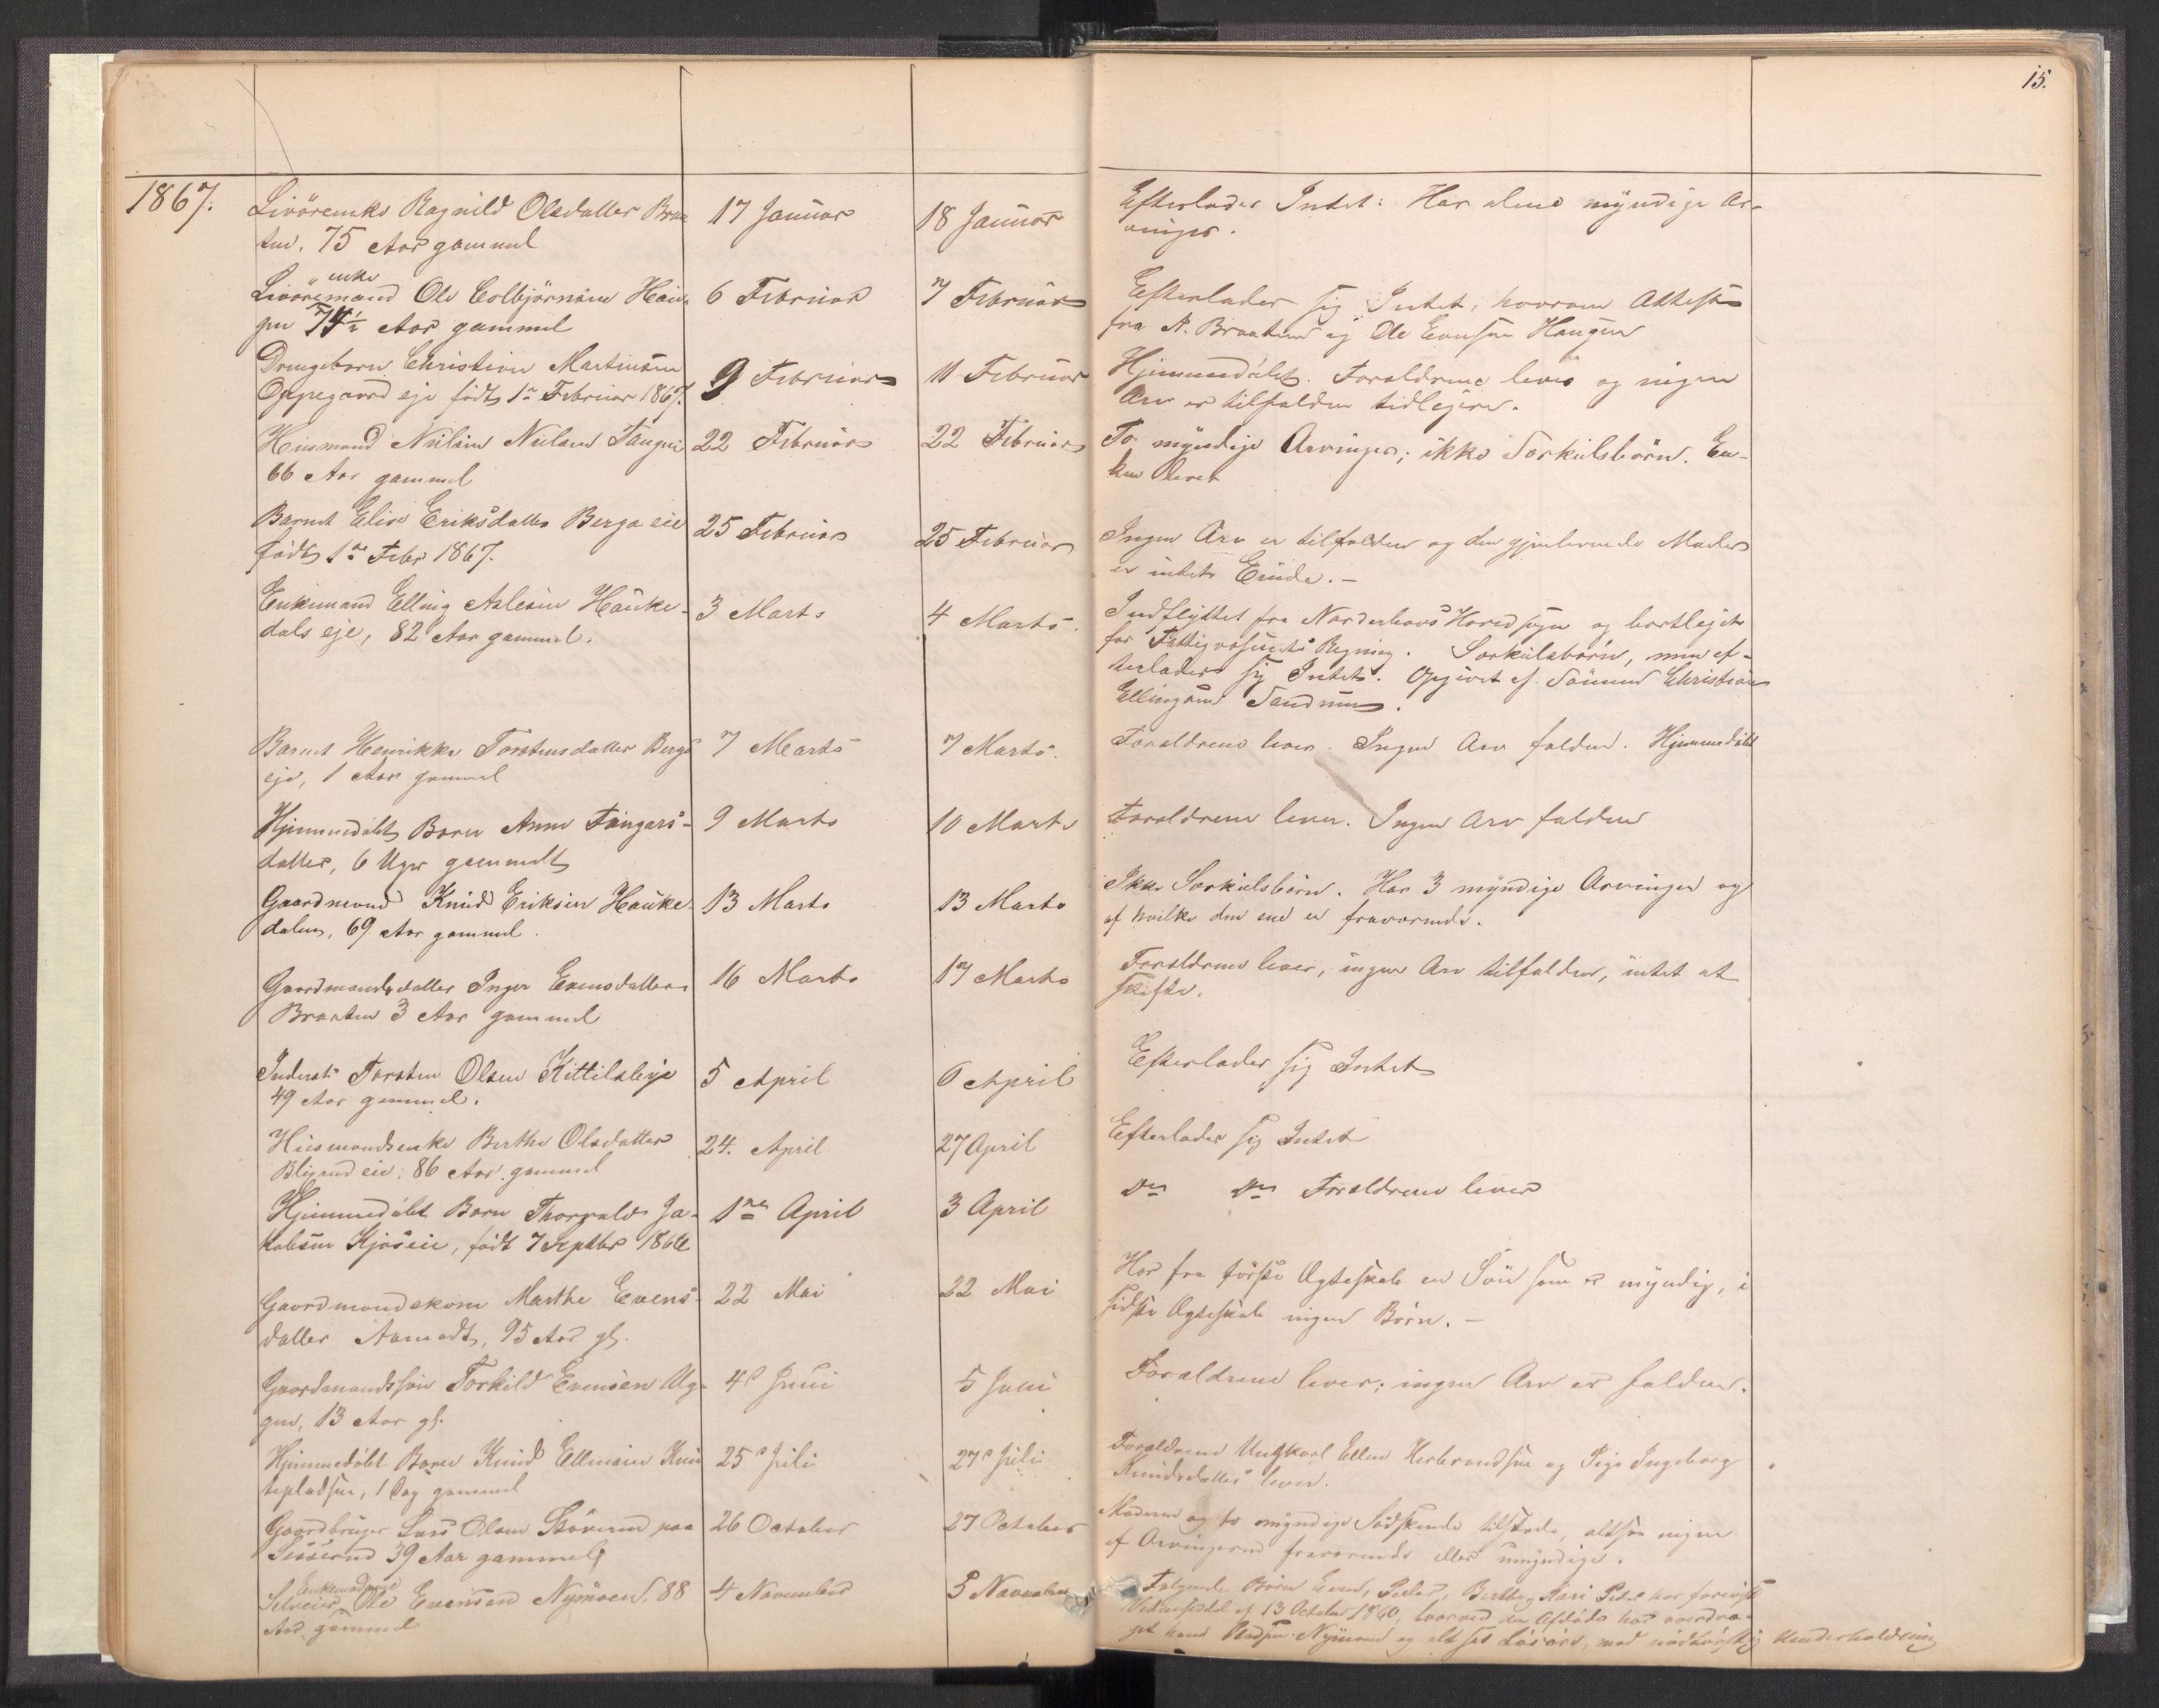 15.
1867.
Livörenke Ragnild Olsdatter Braa-
ten, 75 Aar gammel
17 Januar
18 Januar
Efterlader Intet: Har alene myndige Ar-
vinger.
enke
Livöremand Ole Colbjörnsen Hau-
gen 74½ Aar gammel
6 Februar
7 Februar
Efterlader sig Intet, hvorom Attest
fra N. Braaten og Ole Evensen Haugen
Drengebarn Christian Martinsen
Oppegaard eje födt 1ste Februar 1867.
9 Februar
11 Februar
Hjemmedöbt. Forældrene lever og ingen
Arv er tilfalden tidligere.
Husmand Nielsen
66 Aar gammel
22 Februar
22 Februar
To myndige Arvinger; ikke Særkulsbörn. En-
ken lever
Barnet Elise Eriksdatter Berga eie
födt 1ste Febr 1867.
25 Februar
25 Februar
Ingen Arv er tilfalden og den gjenlevende Moder
er intet Eiende. -
Enkemand Elling Aslesen Hauke-
dals eje, 82 Aar gammel.
3 Marts
4 Marts.
Indflyttet fra Norderhovs Hovedsogn og bortlejet
for Fattigvæsenets Regning. Særkulsbörn, men ef-
terlader sig Intet. Opgivet af Sönnen Christian
Ellingsen
Barnet Henrikke Torstensdatter Berga
eje, 1 Aar gammel
7 Marts
7 Marts.
Forældrene lever. Ingen Arv falden. Hjemmedöbt
Hjemmedöbt Barn Anne
datter, 6 Uger gammelt
9 Marts
10 Marts
Forældrene lever. Ingen Arv falden
Gaardmand Knud Eriksen Hauke-
dalen, 69 Aar gammel.
13 Marts
13 Marts
Ikke Særkulsbörn. Har 3 myndige Arvinger og
af hvilke den ene er fraværende.
Gaardmandsdatter Inger Evensdatter
Braaten 3 Aar gammel
16 Marts
17 Marts
Forældrene lever, ingen Arv tilfalden, intet at
skifte.
Inderst Torsten Olsen Kittilsbye
49 Aar gammel.
5 April
6 April
Efterlader sig Intet
Husmandsenke Berthe Olsdatter
eie, 86 Aar gammel
24. April
27 April
Efterlader sig Intet
Hjemmedöbt Barn Thorvald Ja-
kobsen Kjös eie, födt 7 Septbr 1866
1ste April
3 April
Do Do Forældrene lever
Gaardmandskone Marthe Evens-
datter Aamodt, 95 Aar gl.
22 Mai
22 Mai
Har fra förste Ægteskab en Sön som er myndig, i
sidste Ægteskab ingen Börn. -
Gaardmandssön Torkild Evensen Ug-
gen, 13 Aar gl.
4de Juni
5 Juni
Forældrene lever; ingen Arv er falden.
Hjemmedöbt Barn Knud Ellensen
1 Dag gammel
25de Juli
27de Juli
Forældrene Ungkarl Ellen Herbrandsen og Pige Ingeborg
Knudsdatter lever.
Gaardbruger Lars Olsen Störerud paa
39 Aar gammel
26 October
27 October
Moderen og to myndige Södskende tilstede, altsaa ingen
af Arvingerne fraværende eller umyndige.
Enkemand
Selveier Ole Evensen Nymoen, 88
Aar gammel
4 November
5 November
Fölgende Börn Even, Peder, Berthe, Kari Peder har forevist
af 13 October 1860, hvorved den Afdöde har overdra-
get ham Pladsen Nymoen og alt sit Lösöre, mod nödtörftig Underholdning